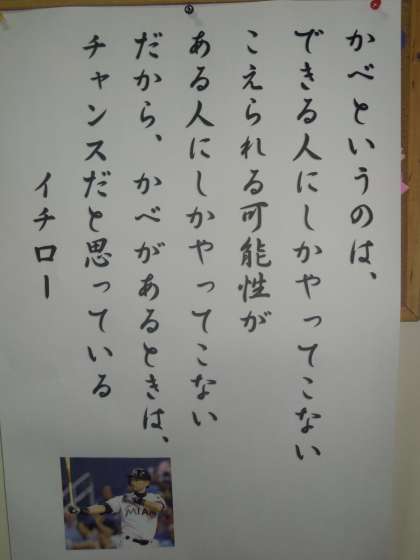 かべというのは、
できる人にしかやってこない
こえられる可能性が
ある人にしかやってこない
だから、かべがあるときは、
チャンスだと思っている
イチロー
MIAMI